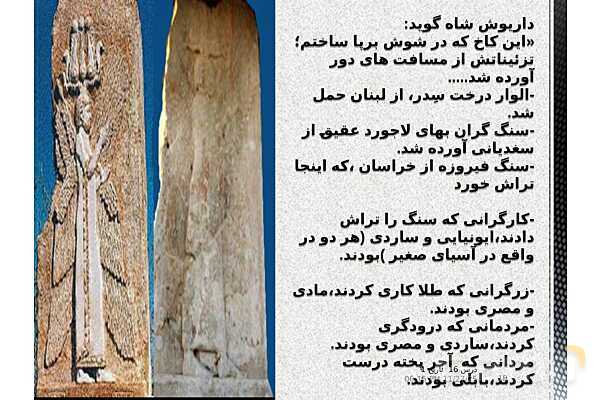 داریوش شاه گوید:
«این کاخ که در شوش برپا ساختم؛
تزئیناتش از مسافت های دور
آورده شد.....
-الوار درخت سِدر، از لبنان حمل
شد.
-سنگ گران بهای لاجورد عقیق از
سغدیانی آورده شد.
-سنگ فیروزه از خراسان ،که اینجا
تراش خورد
-کارگرانی که سنگ را تراش
دادند،ایونیایی و ساردی (هر دو در
واقع در آسیای صغیر )بودند.
-زرگرانی که طلا کاری کردند،مادی
و مصری بودند.
-مردمانی که درودگری
کردند،ساردی و مصری بودند.
مردانی که آجر پخته درست
کردند،بابلی بودند.
درس 16